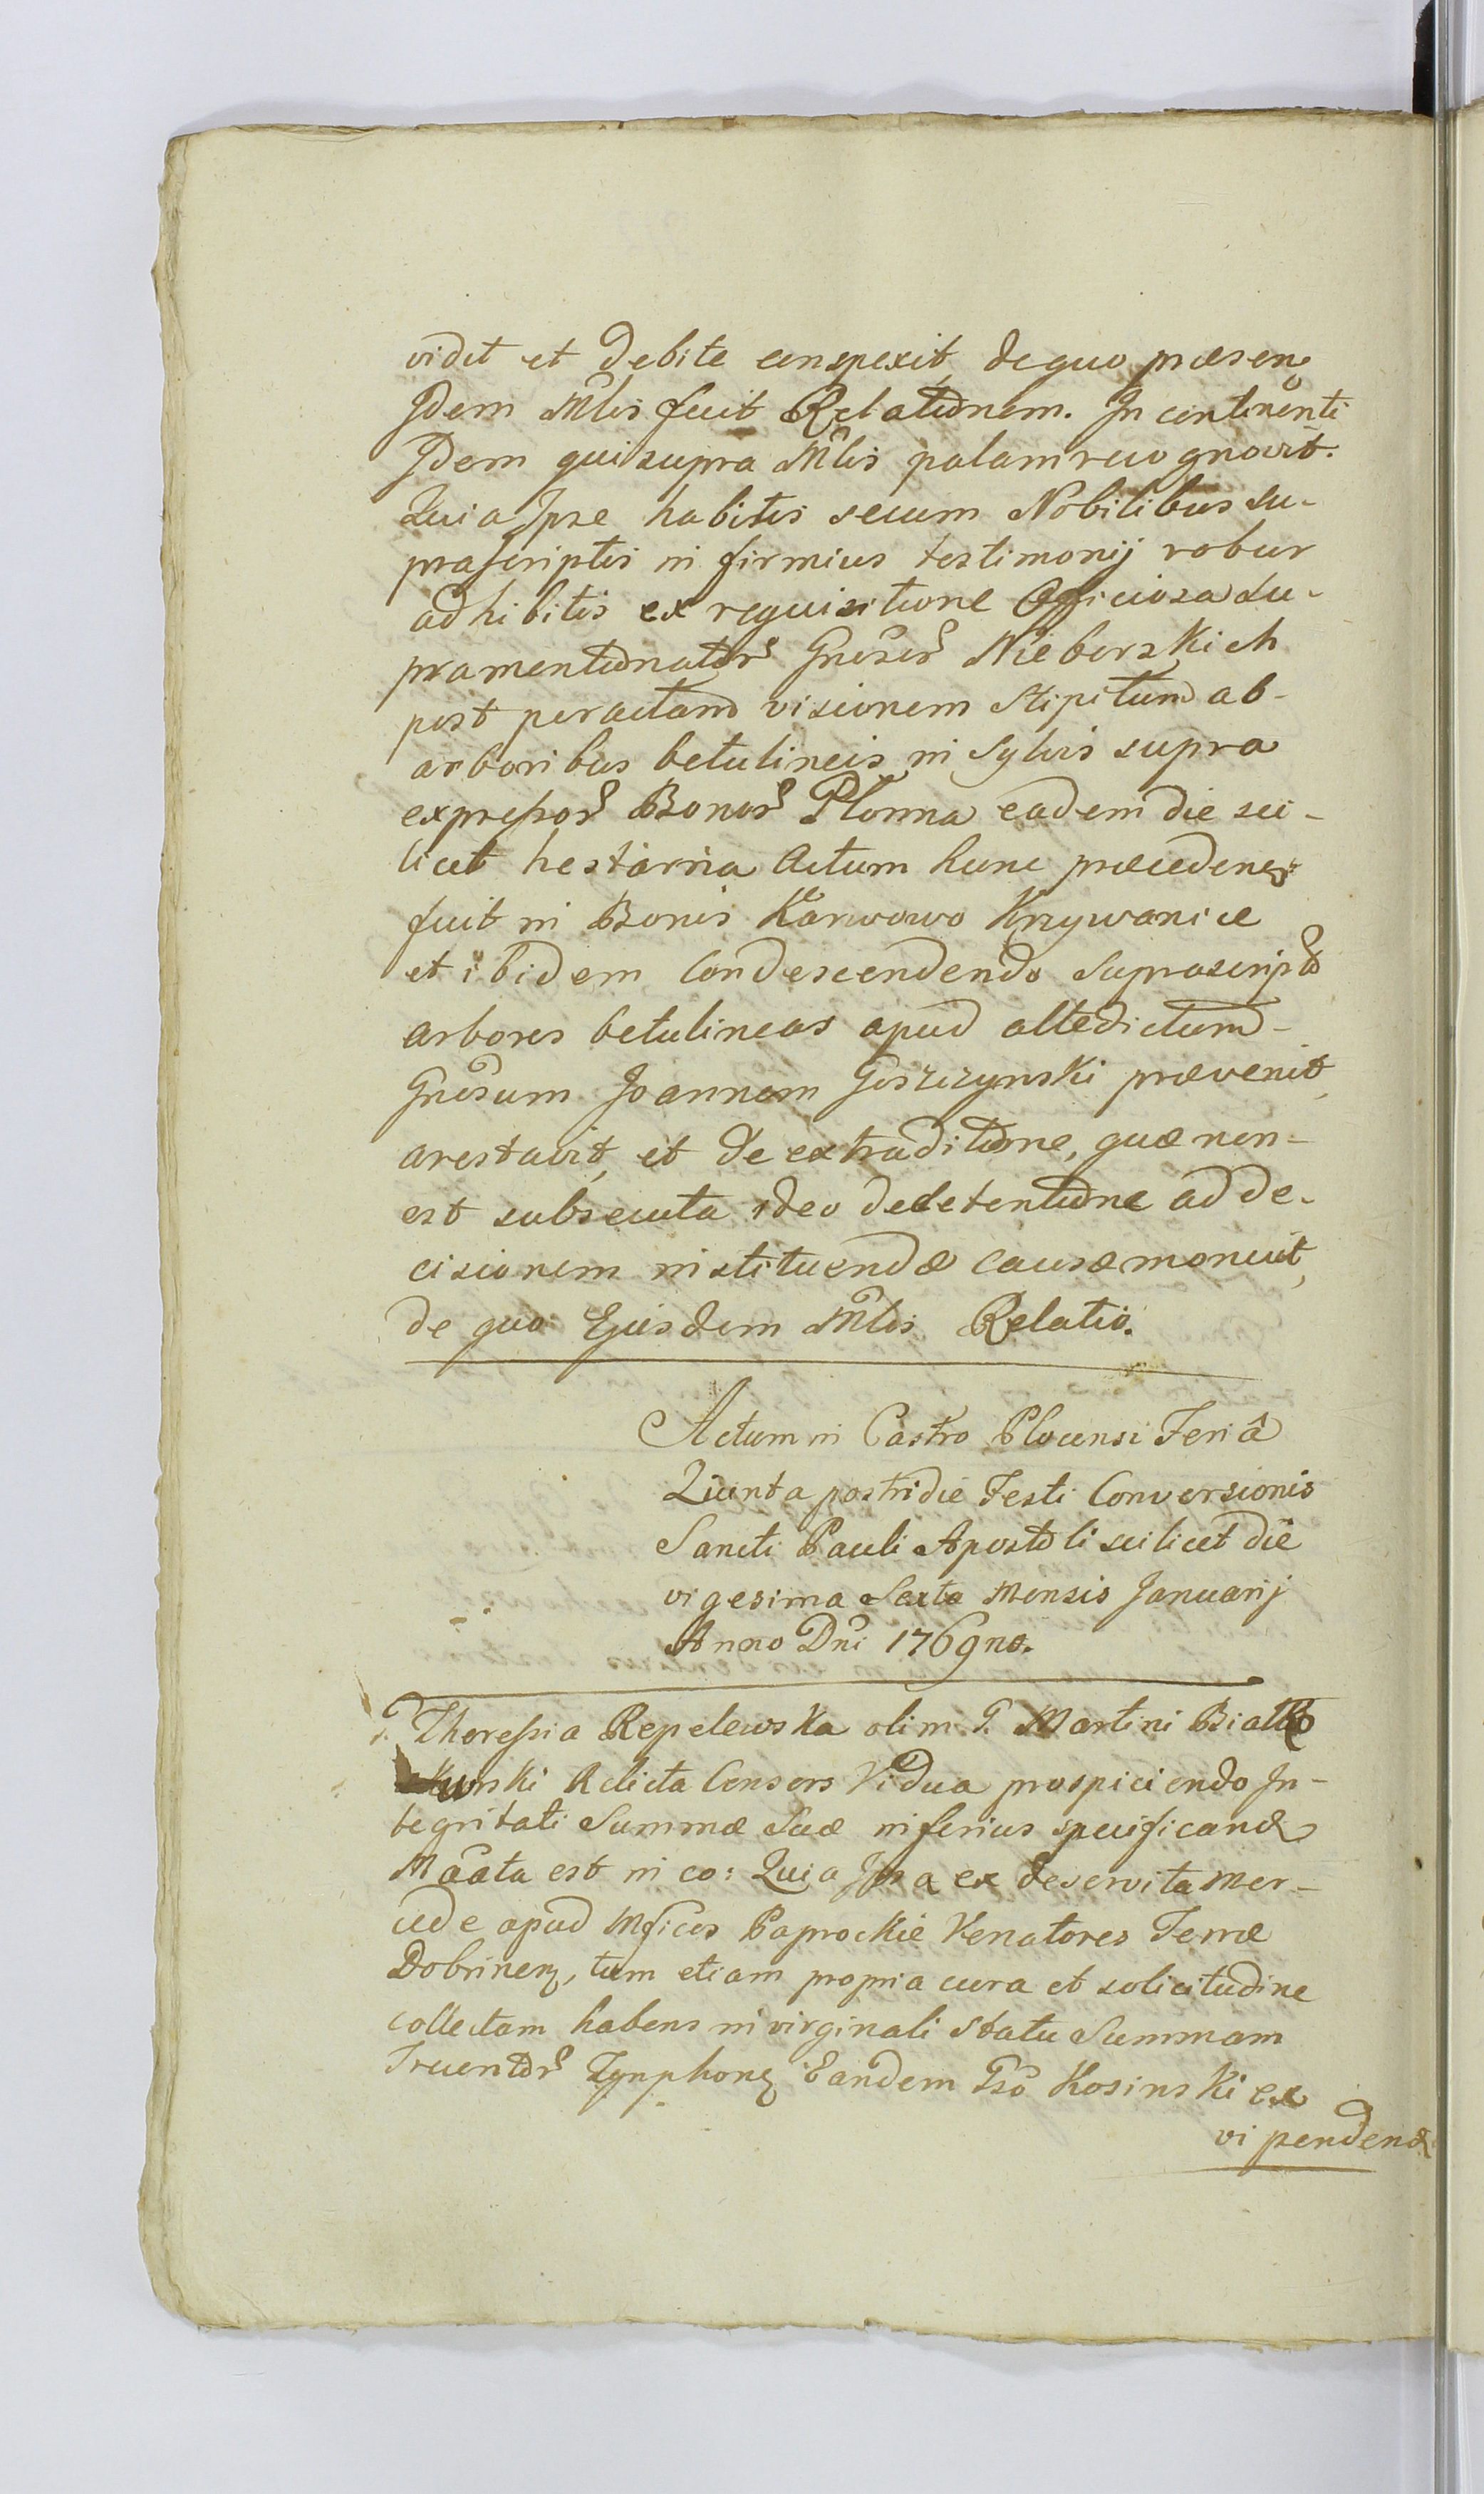 vidit et debite conspexit, de quo præsenꝫ
Jdem Mlis fecit Relationem. In continenti
Jdem qui supra Mlis palam recognovit.
Quia Jpse habitis secum Nobilibus su-
prascriptis in firmius testimonij robur
adhibitis ex requisitione Officiosa su-
pramentionator Gnosor Nieborskich
post peractam visionem Stipitum ab-
arboribus betulineis in Sylvis supra
expressor Bonor Plonna eadem die sci-
licet hesterna Actum hunc præcedenꝫ
fuit in Bonis Karwowo Krzywanice
et ibidem Condescendendo Suprascriptas
arbores betulineas apud altedictum-
Gnosum Joannem Goszczynski prævenit,
arestavit, et de extraditione, quæ non-
est subsecuta ideo de detentione ad de-
cisionem instituendæ causæ monuit,
de quo Ejusdem Mlis Relatio.
Actum in Castro Plocensi Feriâ
Quinta postridie Festi Conversionis
Sancti Pauli Apostoli scilicet die
vigesima Sexta Mensis Januarij
Anno Dni 1769no.
G. Theressia Repelewska olim G. Martini Bialko
kurski Relicta Consors Vidua prospiciendo In-
tegritati Summæ Suæ inferius specificandæ
Maata est in eo: Quia Jpsa ex deservita mer-
cede apud Mficos Paprockie Venatores Terræ
Dobrinenꝫ, tum etiam propria cura et solicitudine
collectam habens in virginali Statu Summam
Trecentor Tynphonꝫ Eandem Gso Kosinski ex
vi pendenꝫ